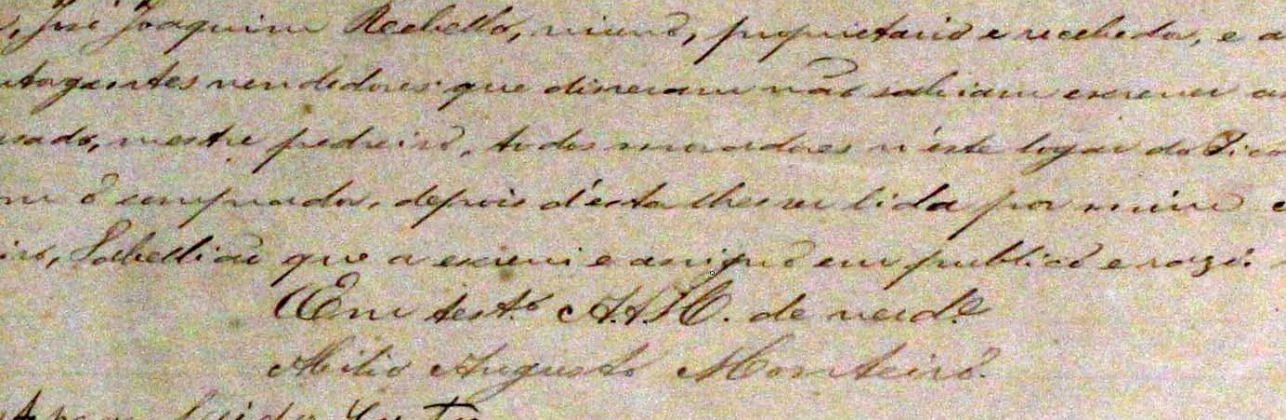 José Joaquim Rebello, viuvo, proprietario e recebedor, e a
outorgantes vendedores que disseram não sabiam escrever a
casado, mestre pedreiro, todos moradores n'este logar do
o comprador, depois d'esta lhes ser lida por mim
Tabellião que a escrevi e assigno em publico e razo.
Em test.º A. A. M. de verd.e
Abilio Augusto Monteiro.